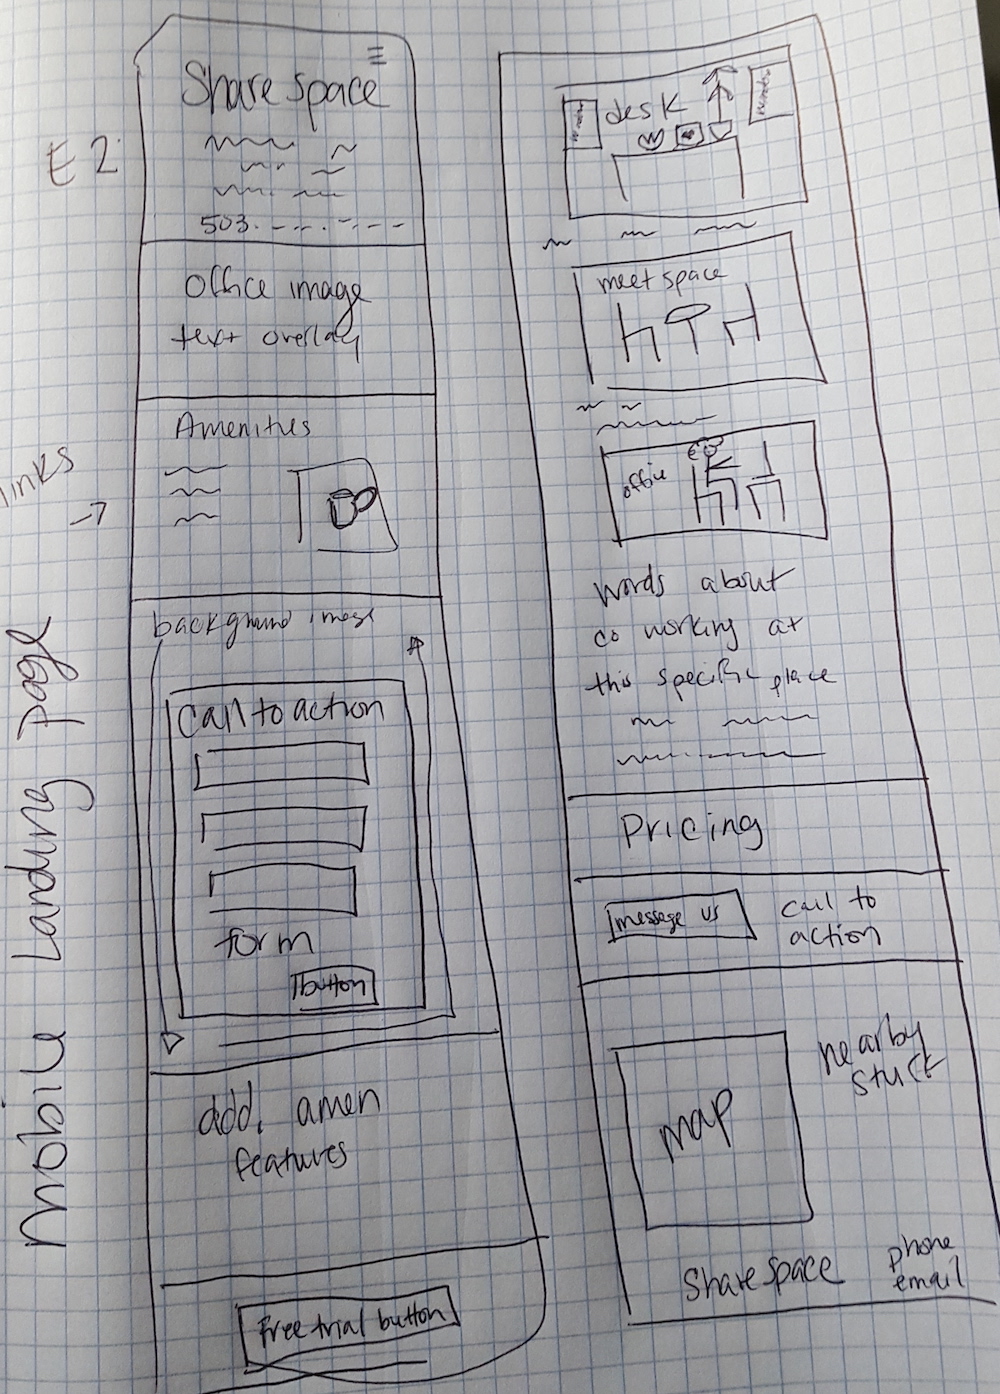 E2
links
Mobile Landing page
Share space
503
Office image
text overlay
Amenities
background image
Call to action
form
button
add. amen
features
Free trial button
desk
meet space
office
words about
co working at
this specific place
Pricing
message us
call to
action
map
nearby
stuff
Share space
phone
email